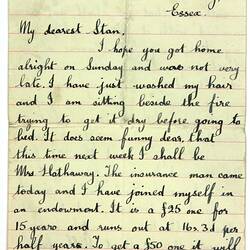 Essex.
My dearest Stan,
I hope you got home
alright on Sunday and was not very
late. I have just washed my hair
and I am sitting beside the fire
trying to get it dry before going to
bed. It does seem funny dear, that
this time next week I shall be
Mrs. Hathaway. The insurance man came
today and I have joined myself in
an endowment. It is a £25 one for
15 years and runs out at 16s. 3d per
half years. To get a £50 one it will